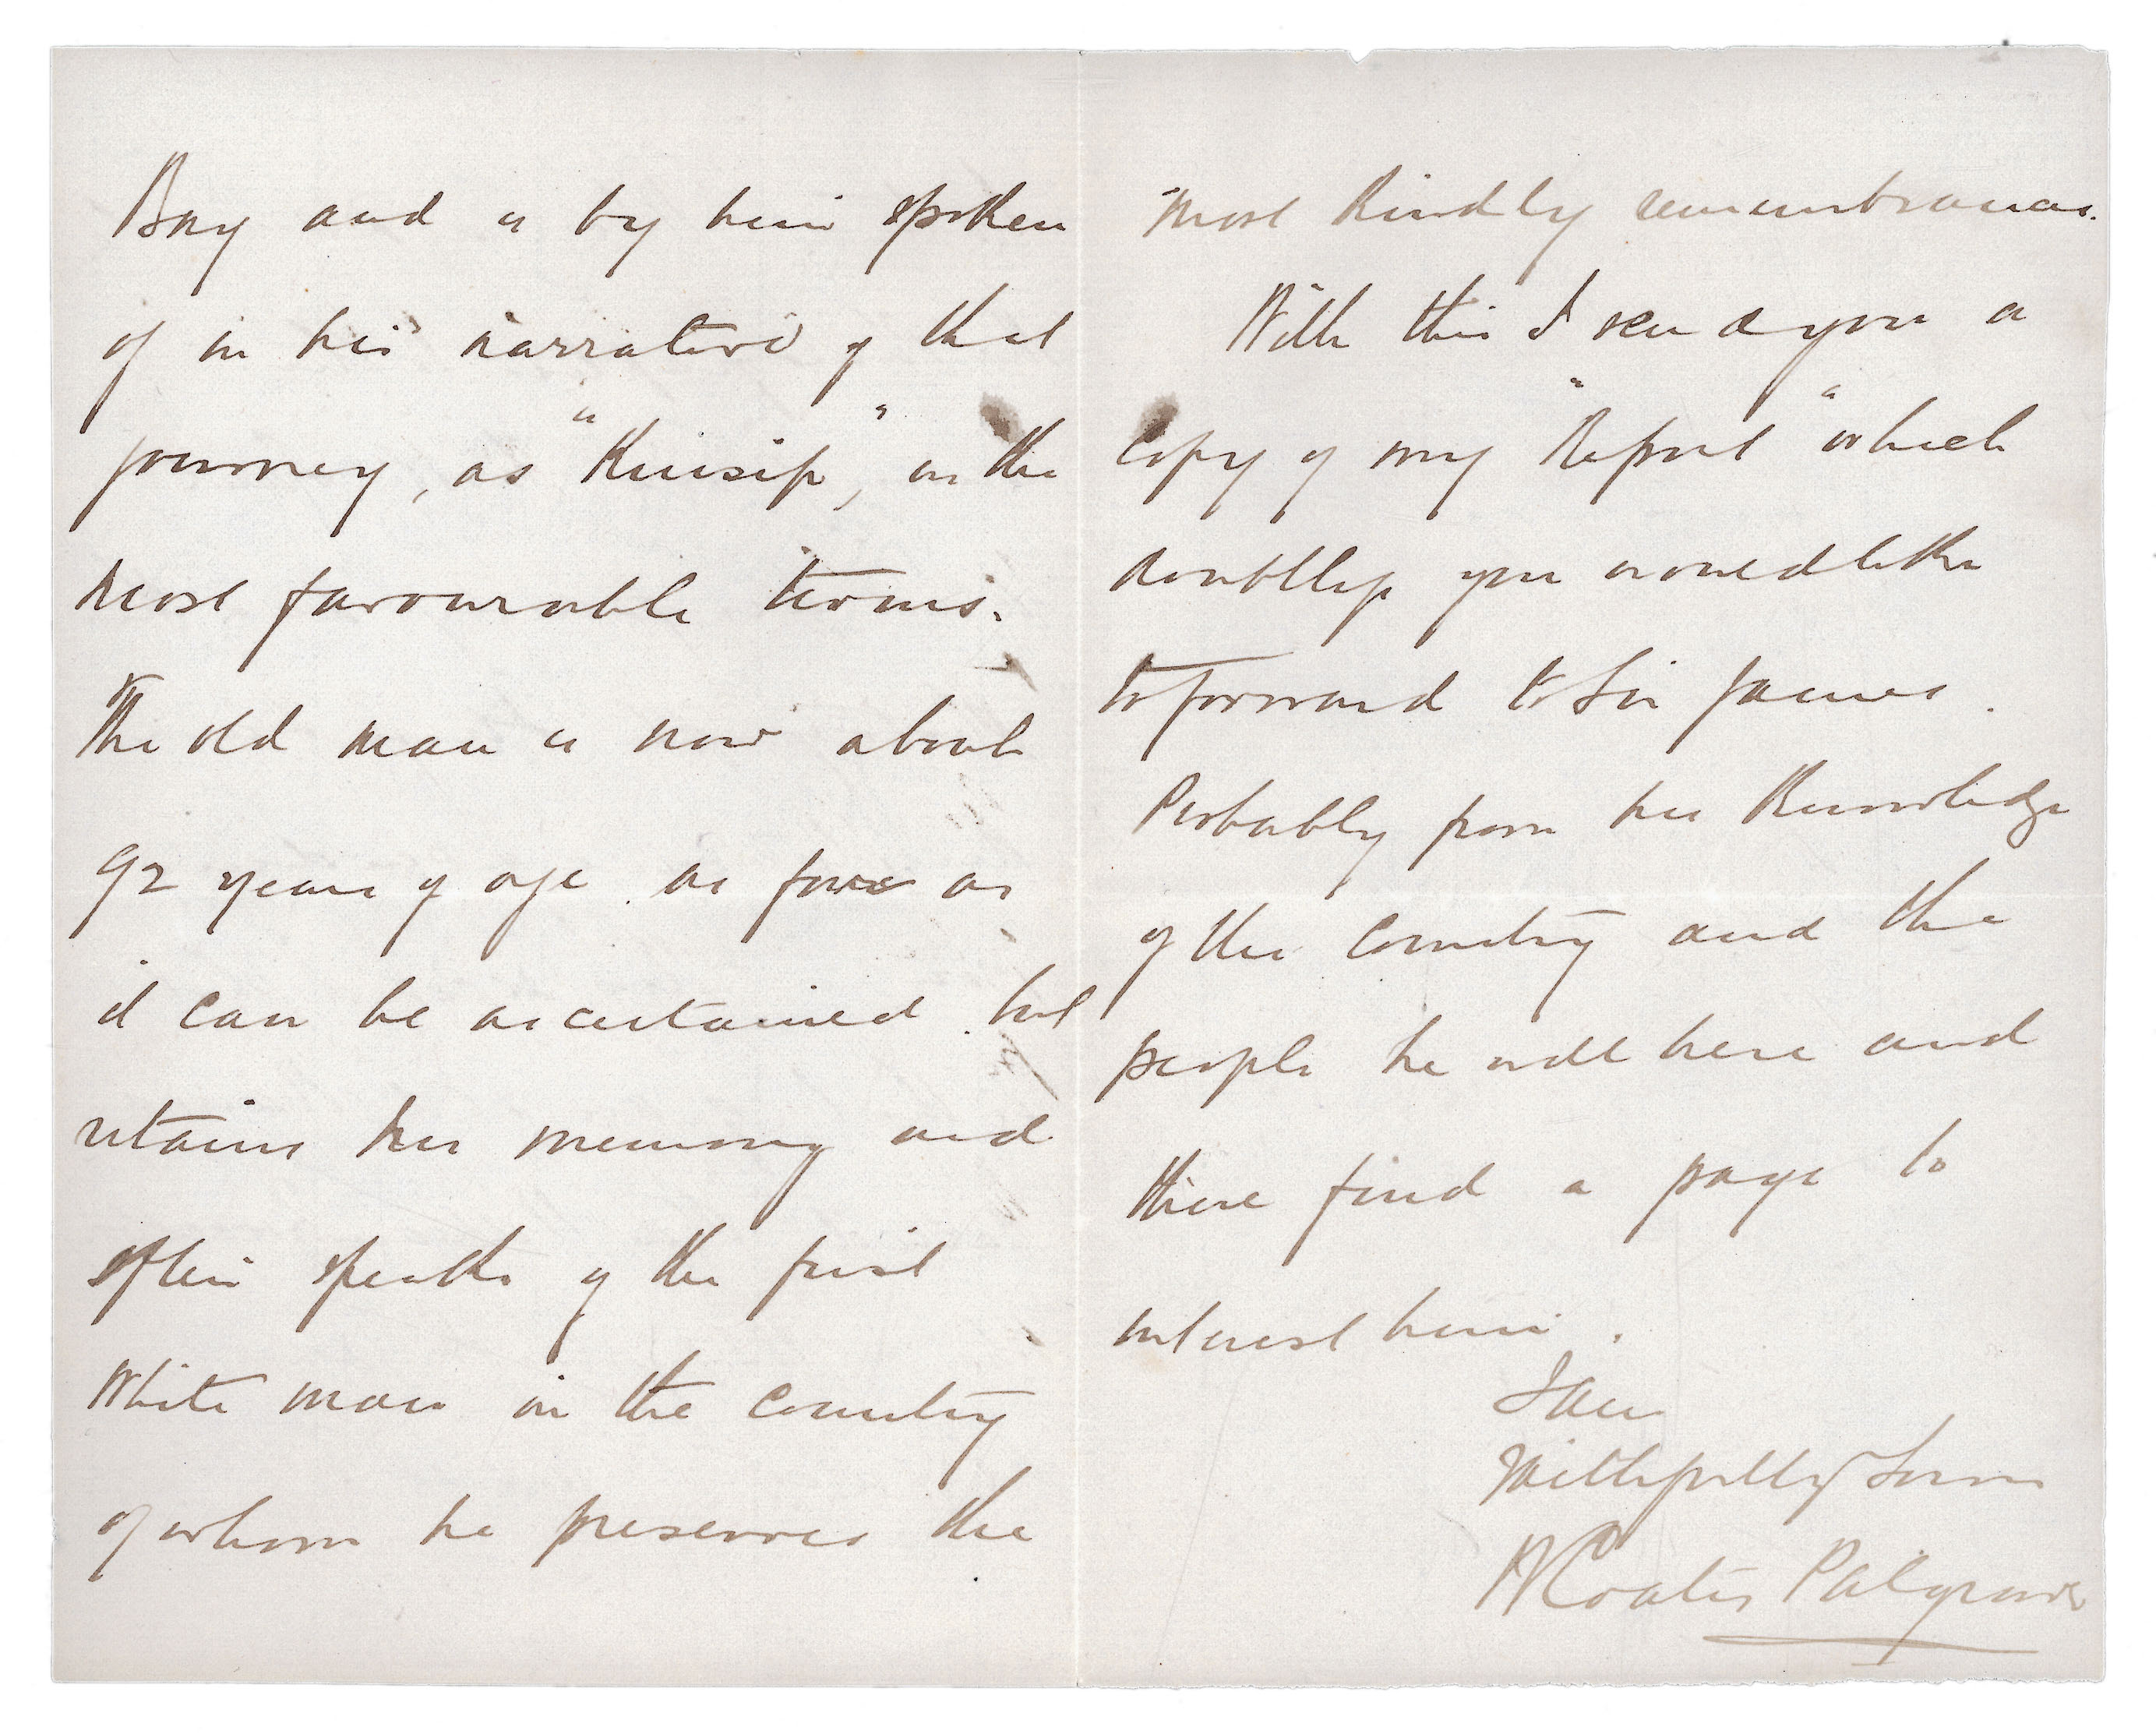 Bay and is by him spoken
of in his narrative of that
journey, as "Kuisip", in the
most favourable terms.
The old man is now about
92 years of age as far as
it can be ascertained but
retains his memory and
often speaks of the first
White man in the country
of whom he preserves the
most kindly remembrances.
With this I send you a
Copy of my "Report" which
doubtless you would like
to forward to Sir James.
Probably from his knowledge
of the Country and the
people he will here and
there find a page to
interest him.
I am
Faithfully Yours
W Coates Palgrave